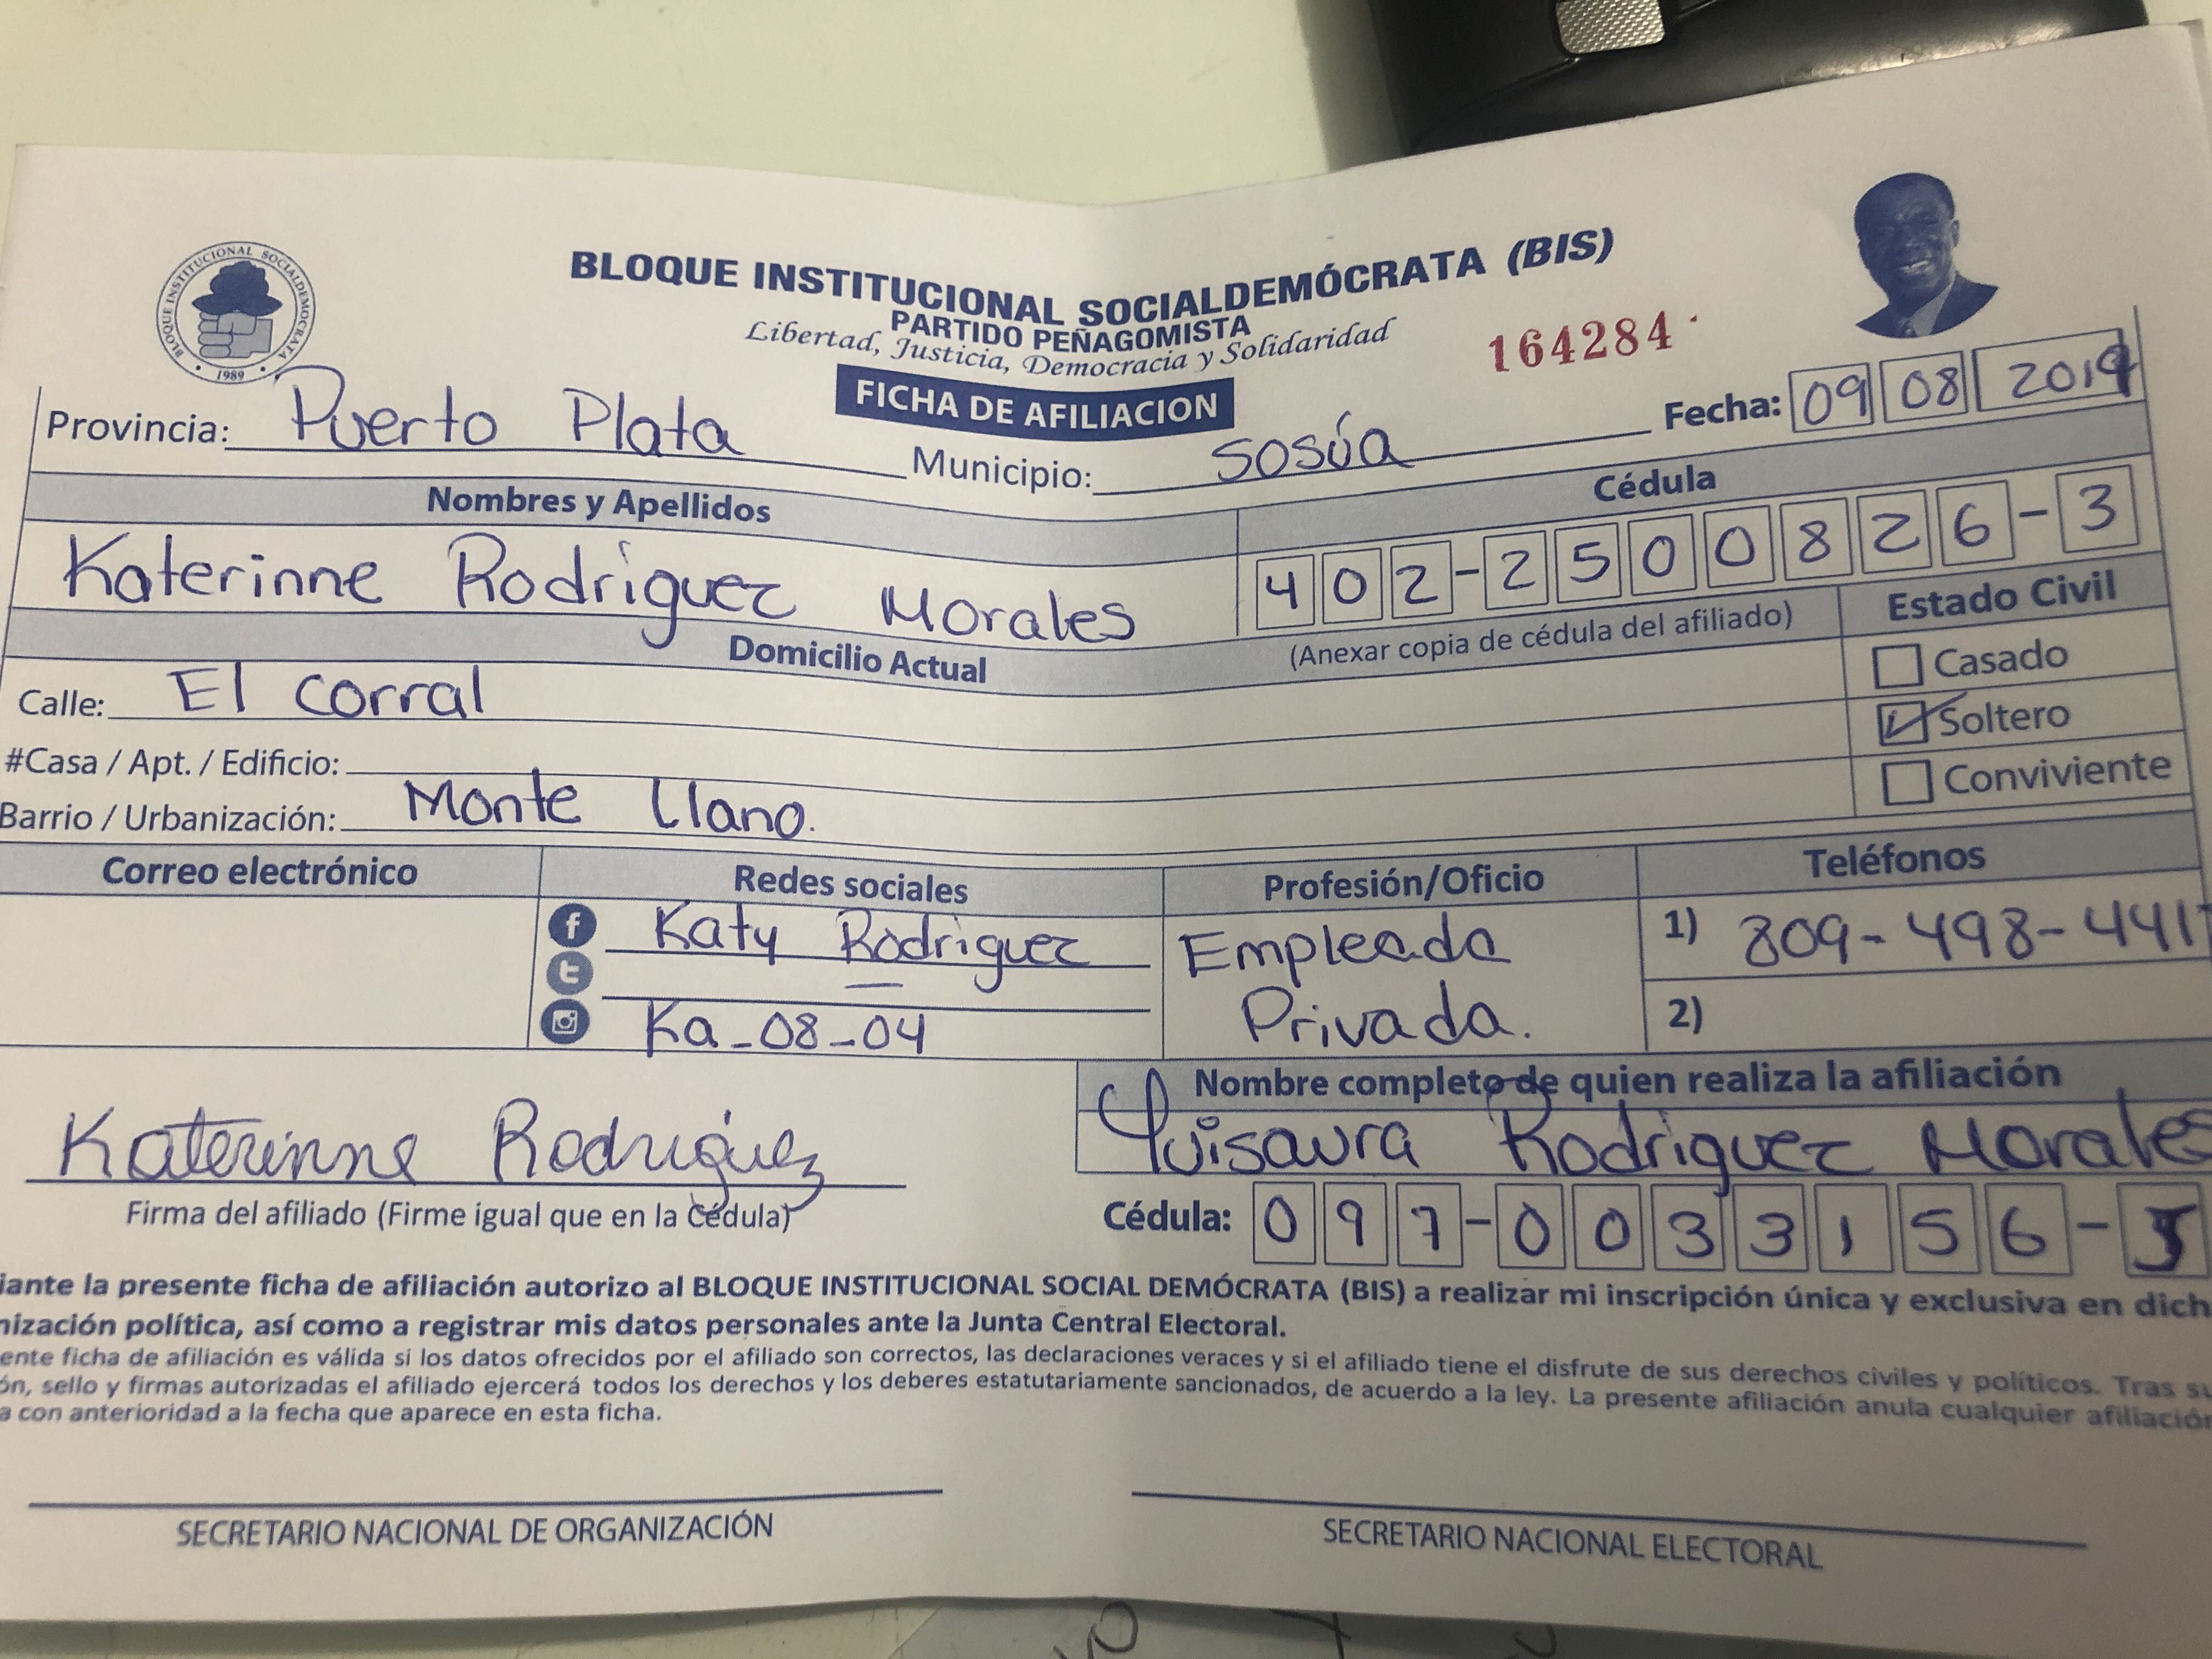 BLOQUE INSTITUCIONAL SOCIALDEMOCRATA
1989
BLOQUE INSTITUCIONAL SOCIALDEMÓCRATA (BIS)
PARTIDO PEÑAGOMISTA
Libertad, Justicia, Democracia y Solidaridad
164284
FICHA DE AFILIACION
Fecha: 09 08 2019
Provincia: Puerto Plata Municipio: Sosúa
Nombres y Apellidos Cédula
Katerinne Rodriguez Morales 402-2500826-3
(Anexar copia de cédula del afiliado)
Estado Civil
Domicilio Actual
Casado
Calle: El corral
Soltero
#Casa / Apt. / Edificio:
Conviviente
Barrio / Urbanización: Monte Llano.
Correo electrónico Redes sociales Profesión/Oficio Teléfonos
f Katy Rodriguez Empleada 1) 809-498-441
t —
Ka_08_04 Privada. 2)
Nombre completo de quien realiza la afiliación
Katerinne Rodriguez Luisaura Rodriguez Morales
Firma del afiliado (Firme igual que en la Cédula) Cédula: 097-0033156-
iante la presente ficha de afiliación autorizo al BLOQUE INSTITUCIONAL SOCIAL DEMÓCRATA (BIS) a realizar mi inscripción única y exclusiva en dich
nización política, así como a registrar mis datos personales ante la Junta Central Electoral.
ente ficha de afiliación es válida si los datos ofrecidos por el afiliado son correctos, las declaraciones veraces y si el afiliado tiene el disfrute de sus derechos civiles y políticos. Tras su
ón, sello y firmas autorizadas el afiliado ejercerá todos los derechos y los deberes estatutariamente sancionados, de acuerdo a la ley. La presente afiliación anula cualquier afiliación
a con anterioridad a la fecha que aparece en esta ficha.
SECRETARIO NACIONAL DE ORGANIZACIÓN SECRETARIO NACIONAL ELECTORAL